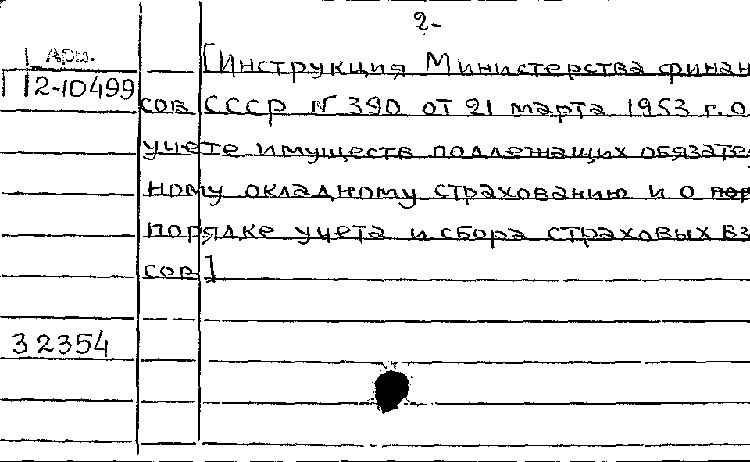 2-
Арм.
[Инструкция Министерства финан
П2-10499
сов СССР № 390 от 21 марта 1953 г. о
учете имуществ подлежащих обязател
ному окладному страхованию и о
порядке учета и сбора страховых вз
сов]
32354